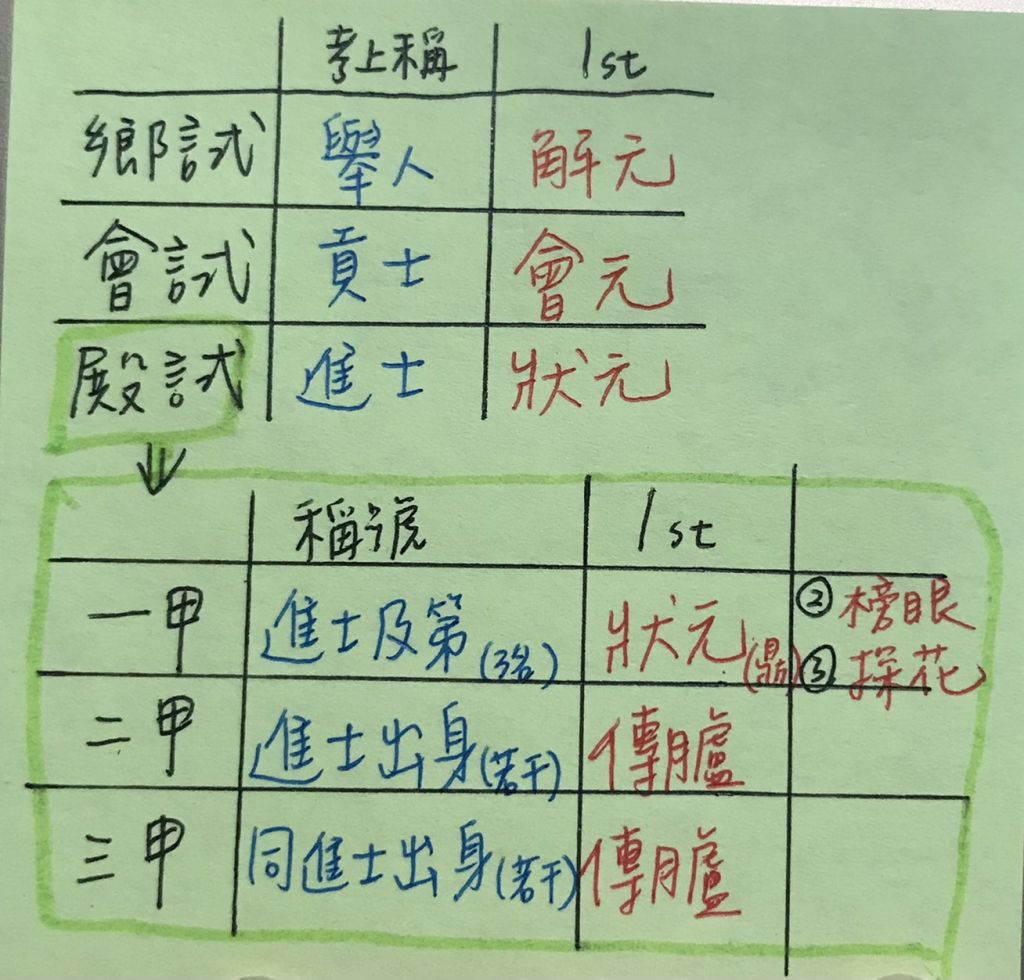 考上稱 1st
鄉試 舉人 解元
會試 貢士 會元
殿試 進士 狀元
稱號 1st
一甲 進士及第(3名) 狀元(鼎) ②榜眼
③探花
二甲 進士出身(若干) 傳臚
三甲 同進士出身(若干) 傳臚